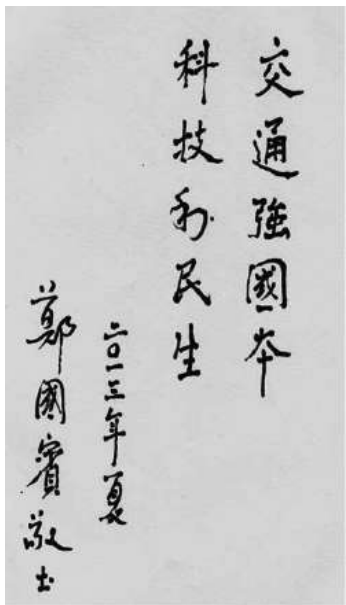 交通強國本
科技利民生
二〇一三年夏
鄭國賓敬书